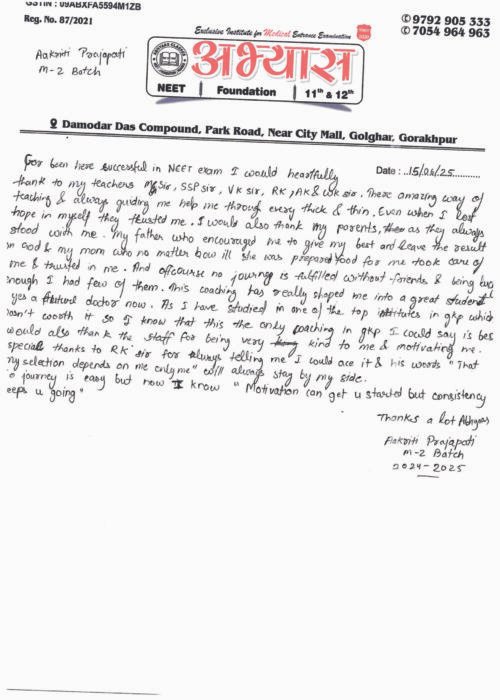 GSTIN : 09ABXFA5594M1ZB
Reg. No. 87/2021
Aakriti Prajapati
M-2 Batch
Exclusive Institute for Medical Entrance Examination
अभ्यास
NEET | Foundation | 11th & 12th
9792 905 333
7054 964 963
Damodar Das Compound, Park Road, Near City Mall, Golghar, Gorakhpur
Date : 15/06/25
For been here successful in NEET exam I would heartfully
thank to my teachers MG sir, SSP sir, VK sir, RK, AK & VK sir. There amazing way of
teaching & always guiding me help me through every thick & thin. Even when I lost
hope in myself they trusted me. I would also thank my parents, there as they always
stood with me. My father who encouraged me to give my best and leave the result
on God & my mom who no matter how ill she was prepared food for me took care of
me & trusted in me. And ofcourse no journey is fulfilled without friends & being
nough I had few of them. This coaching has really shaped me into a great student
yes a future doctor now. As I have studied in one of the top institutes in gkp which
asn't worth it so I know that this the only coaching in gkp I could say is bes
would also thank the staff for being very kind to me & motivating me.
special thanks to RK sir for always telling me I could ace it & his words "That
my selection depends on me only me" will always stay by my side.
o journey is easy but now I know "Motivation can get u started but consistency
eeps u going"
Thanks a lot Abhyas
Aakriti Prajapati
M-2 Batch
2024-2025